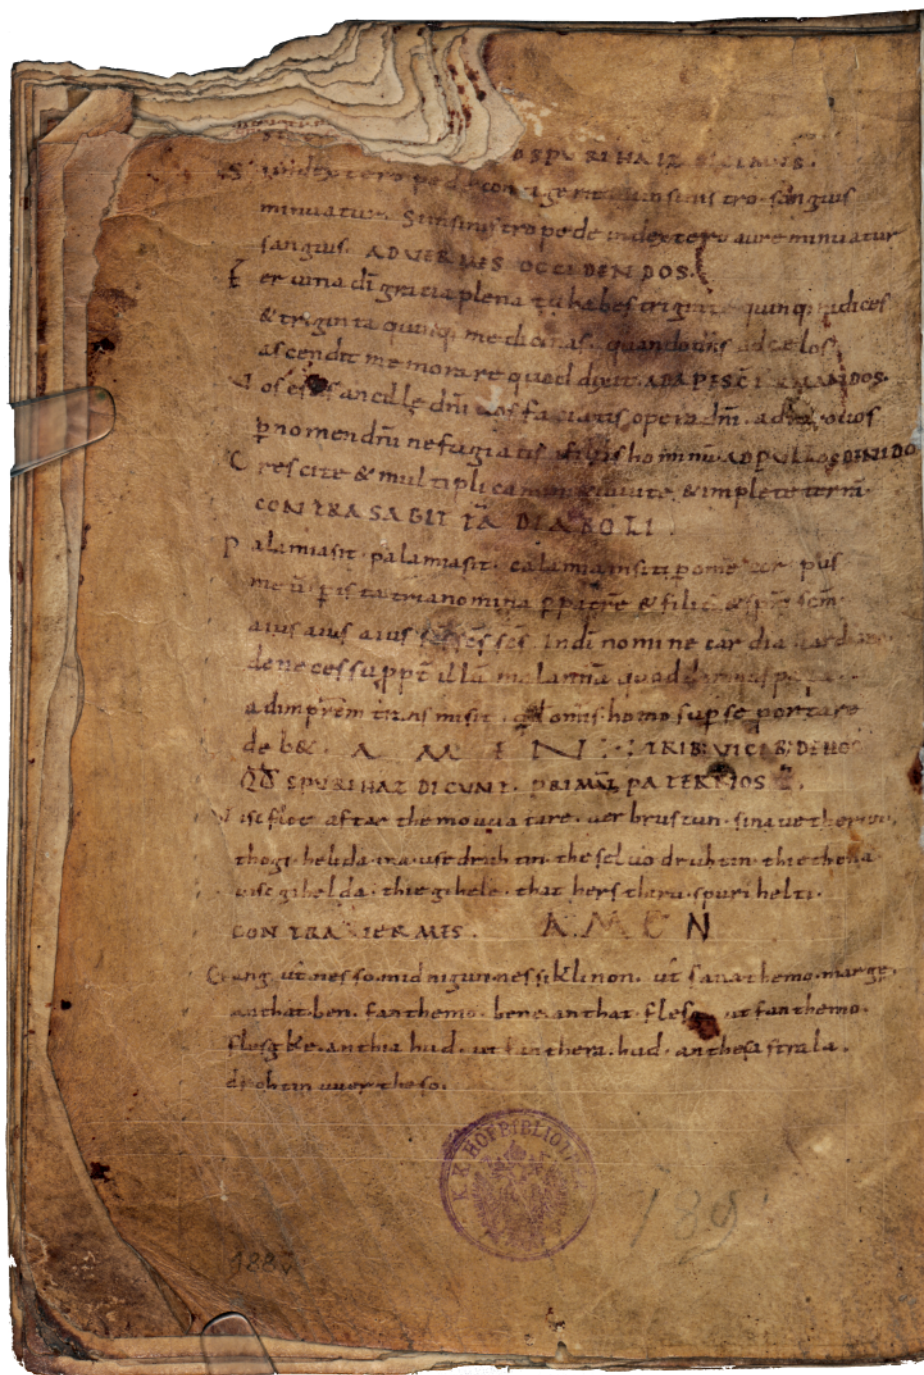 SPURIHAIZ DICIMUS.
Si in dextero pede contigerit sinistro sanguis
minuatur. Si in sinistro pede in dextero aure minuatur
sanguis. AD VERMES OCCIDENDOS.
Feruina dī gracia plena tu habes triginta quinq; indices
& triginta quinq; medicinas. quando dn̄s ad celos
ascendit memorare quod dixit. AD APES CONFIRMANDOS.
Vos estis ancille dn̄i uos faciatis opera dn̄i. adiuro uos
p nomen dn̄i ne fugiatis filiis hominū. AD PULLOS DE NIDO
Crescite & multiplicamini & uiuite & implete terrā.
CONTRA SAGITTĀ DIABOLI.
Palamiasit. palamiasit. calamia insiti p omē corpus
me ū. p ista tria nomina p patrē & filiū & sp̄m scm̄.
aius aius aius scs̄ scs̄ scs̄. In dī nomine cardia cardiani
de neces supp̄t illā malannā quod domnus papa
ad imprēm transmisit. qd̄ omis homo sup se portare
deb&. AMEN. TRIB; VICIB;
QD̄ SPURIHAZ DICUNT. PRIMŪ PATER NOS̄.
Visc flot aftar themo uuatare. uerbrustun. sina uetherun.
tho gihelida ina. use druhtin. the seluo druhtin. thie thena
uisc gihelda. thie gihele. that hers theru. spurihelti.
CONTRA UERMES. AMEN
Gang ūt nesso. mid nigun nessiklinon. ūt fana themo marge.
an that ben. fan themo. bene. an that. flesg. ut fan themo.
flesgke. an thia hud. ut fan thera. hud. an thesa strala.
drohtin uuerthe so.
K. K. HOFBIBLIOTHEK
188v